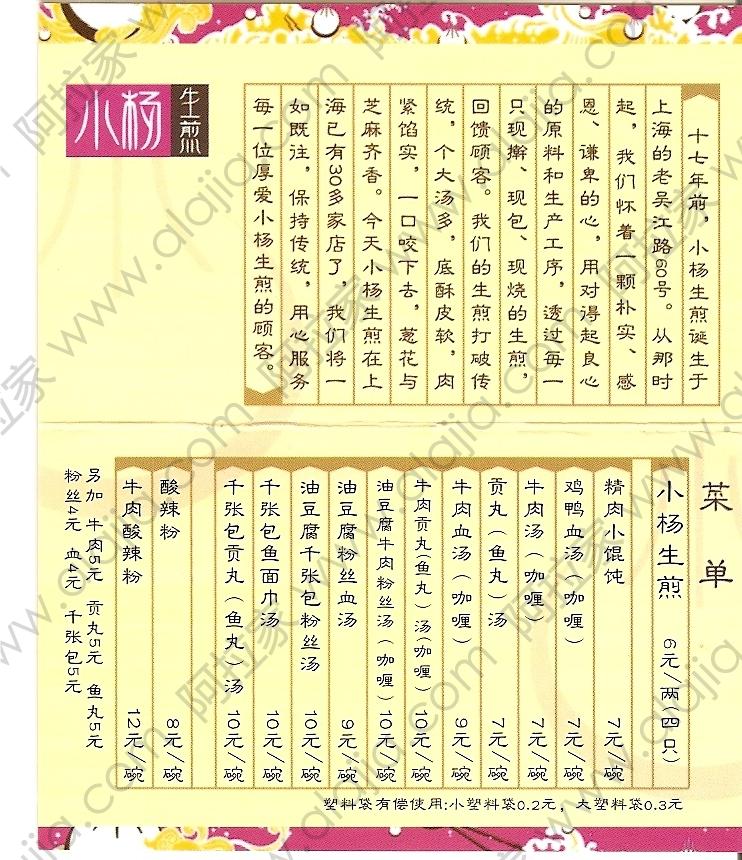 小杨
生煎
十七年前，小杨生煎诞生于
上海的老吴江路60号。从那时
起，我们怀着一颗朴实、感
恩、谦卑的心，用对得起良心
的原料和生产工序，透过每一
只现擀、现包、现烧的生煎，
回馈顾客。我们的生煎打破传
统，个大汤多，底酥皮软，肉
紧馅实，一口咬下去，葱花与
芝麻齐香。今天小杨生煎在上
海已有30多家店了，我们将一
如既往，保持传统，用心服务
每一位厚爱小杨生煎的顾客。
菜单
小杨生煎 6元/两(四只)
精肉小馄饨 7元/碗
鸡鸭血汤(咖喱) 7元/碗
牛肉汤(咖喱) 7元/碗
贡丸(鱼丸)汤 7元/碗
牛肉血汤(咖喱) 9元/碗
牛肉贡丸(鱼丸)汤(咖喱) 10元/碗
油豆腐牛肉粉丝汤(咖喱) 10元/碗
油豆腐粉丝血汤 9元/碗
油豆腐千张包粉丝汤 10元/碗
千张包鱼面巾汤 10元/碗
千张包贡丸(鱼丸)汤 10元/碗
酸辣粉 8元/碗
牛肉酸辣粉 12元/碗
另加 牛肉5元 贡丸5元 鱼丸5元
粉丝4元 血4元 千张包5元
塑料袋有偿使用:小塑料袋0.2元，大塑料袋0.3元
阿拉家 www.alajia.com